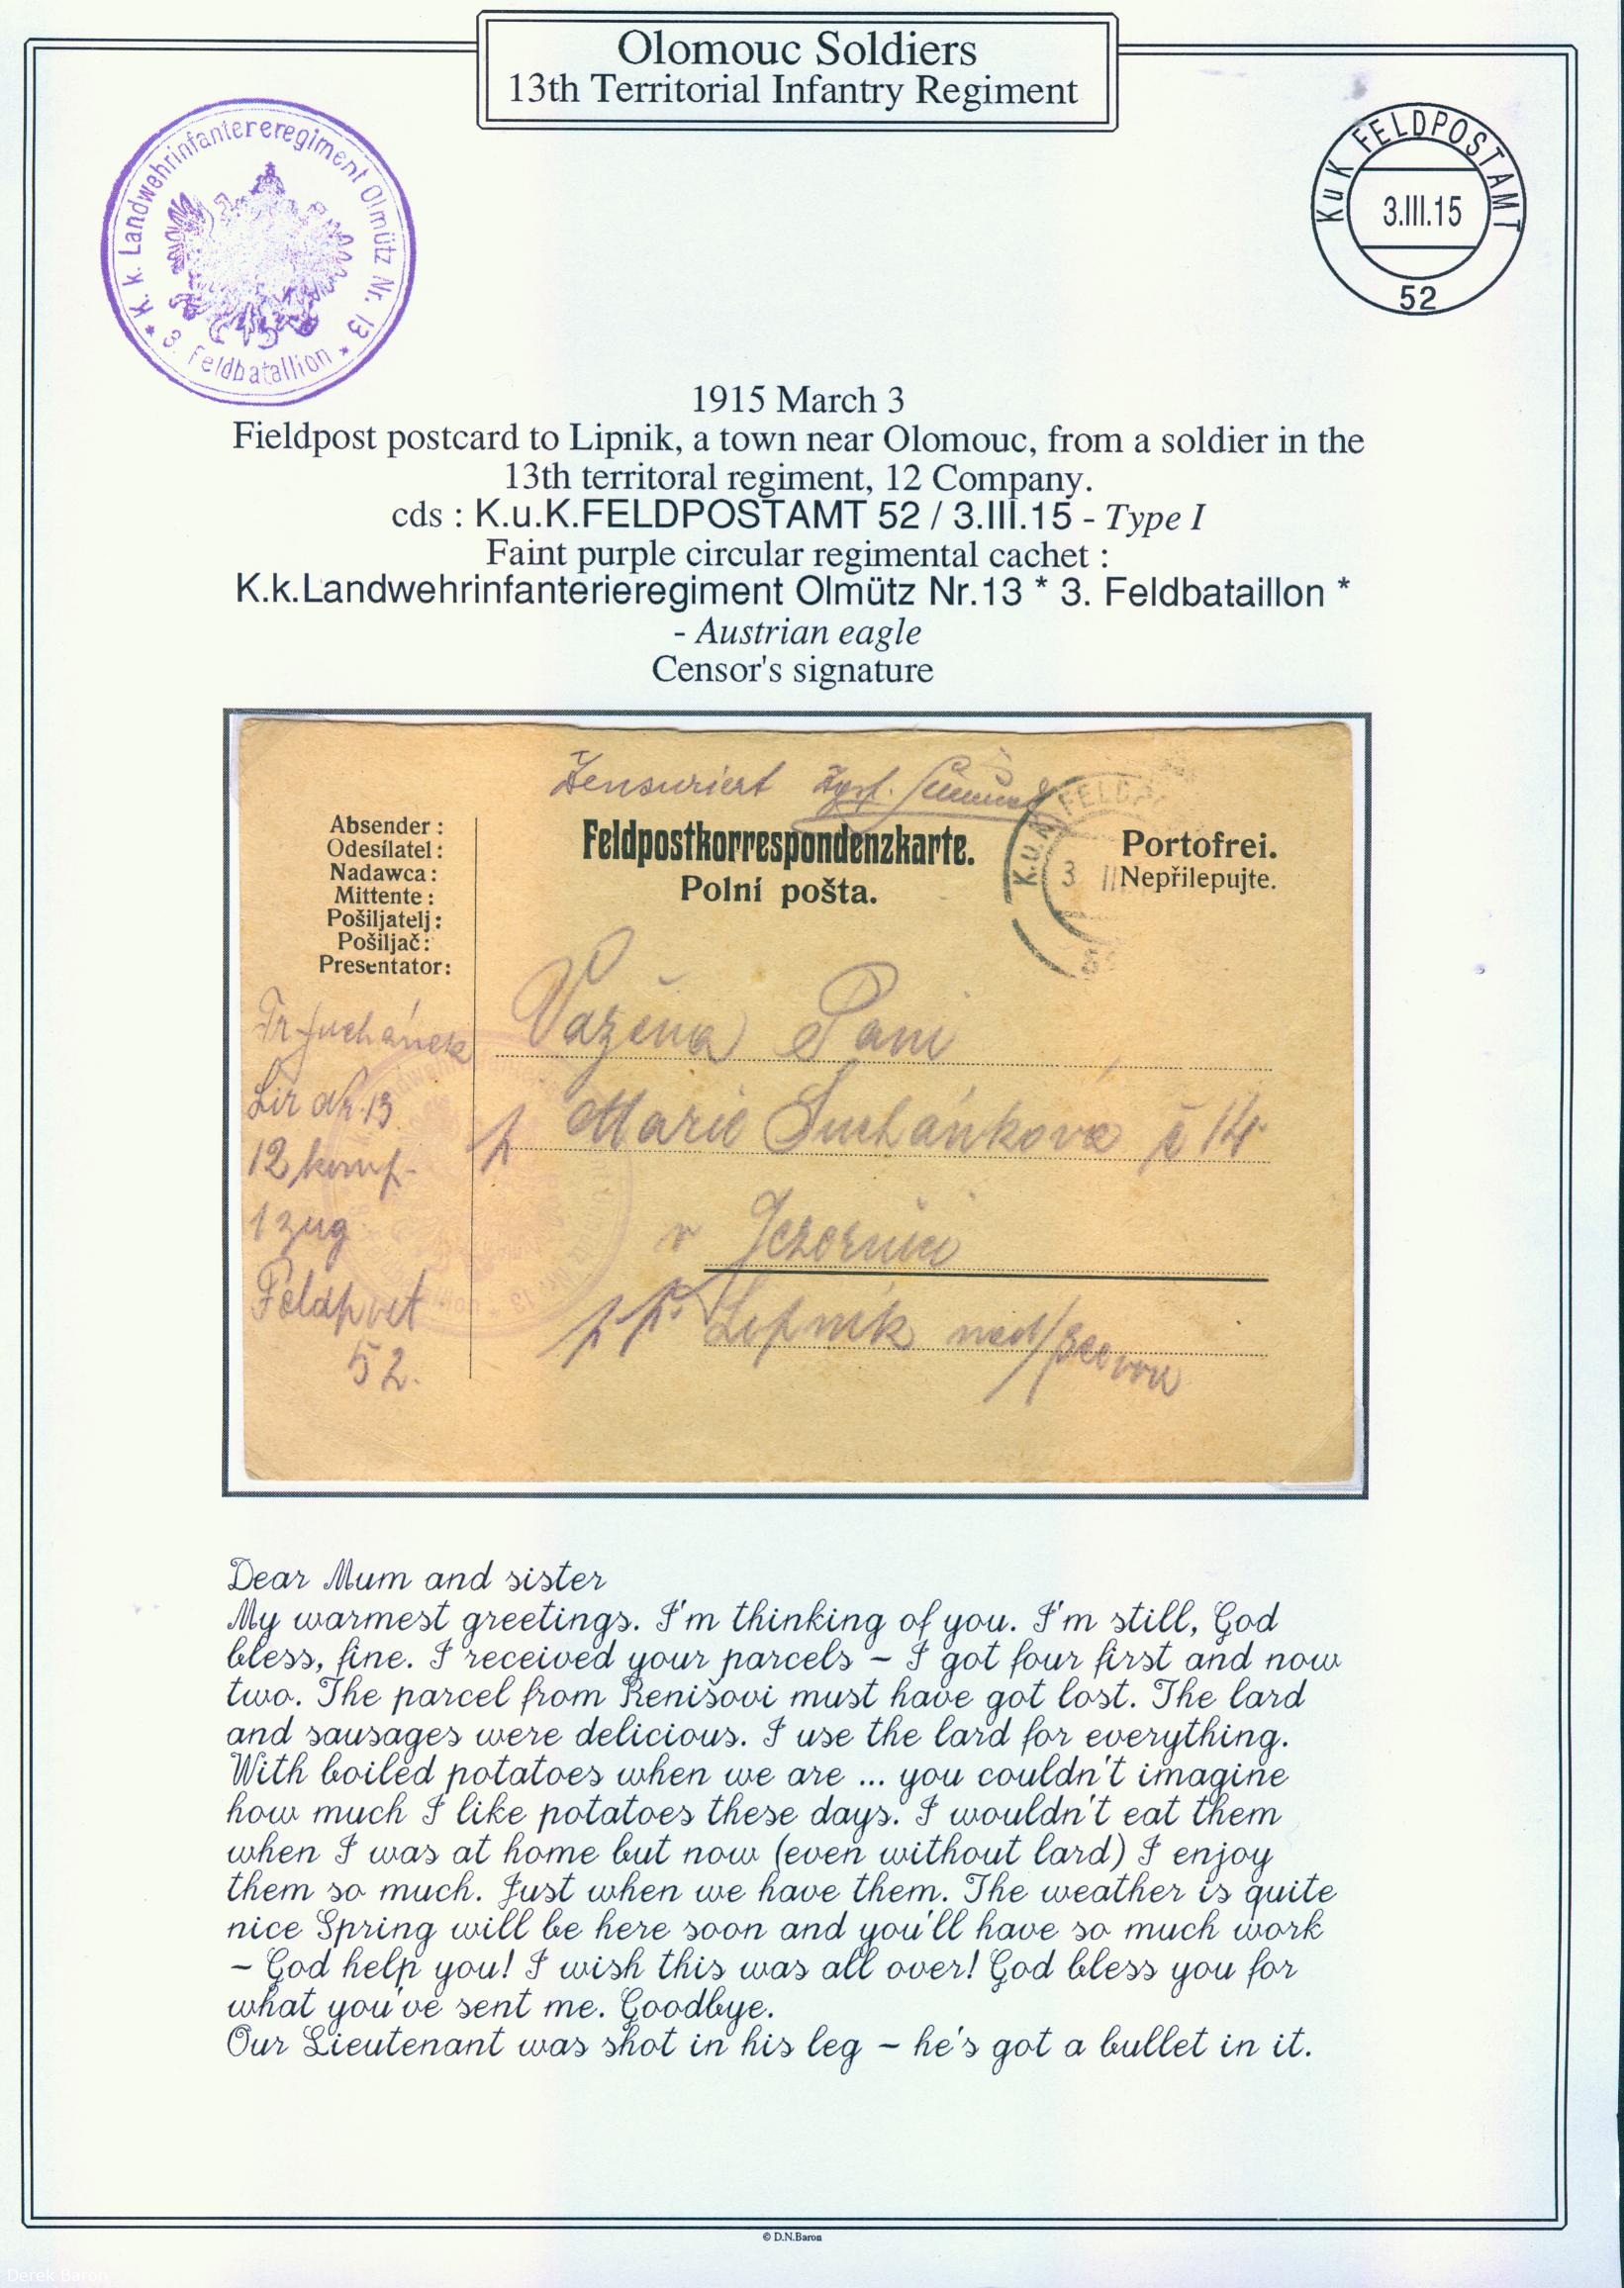 Olomouc Soldiers
13th Territorial Infantry Regiment
K. k. Landwehrinfantereregiment Olmütz Nr. 13
* 3. Feldbatallion *
KuK FELDPOSTAMT
3.III.15
52
1915 March 3
Fieldpost postcard to Lipnik, a town near Olomouc, from a soldier in the
13th territoral regiment, 12 Company.
cds : K.u.K.FELDPOSTAMT 52 / 3.III.15 - Type I
Faint purple circular regimental cachet :
K.k.Landwehrinfanterieregiment Olmütz Nr.13 * 3. Feldbataillon *
- Austrian eagle
Censor's signature
Zensuriert
K.u.K. FELDP
3 II
Absender :
Odesílatel :
Nadawca :
Mittente :
Pošiljatelj :
Pošiljač :
Presentator :
Feldpostkorrespondenzkarte.
Polní pošta.
Portofrei.
Nepřilepujte.
Fr Suchánek
Lir Nr. 13.
12 komp.
1 zug
Feldpost
52.
Vážená Paní
p Marie Suchánková č 14
v Jezernici
p. p. Lipník nad/Bečvou
Dear Mum and sister
My warmest greetings. I'm thinking of you. I'm still, God
bless, fine. I received your parcels – I got four first and now
two. The parcel from Renišovi must have got lost. The lard
and sausages were delicious. I use the lard for everything.
With boiled potatoes when we are ... you couldn't imagine
how much I like potatoes these days. I wouldn't eat them
when I was at home but now (even without lard) I enjoy
them so much. Just when we have them. The weather is quite
nice Spring will be here soon and you'll have so much work
– God help you! I wish this was all over! God bless you for
what you've sent me. Goodbye.
Our Lieutenant was shot in his leg – he's got a bullet in it.
© D.N.Baron
Derek Baron